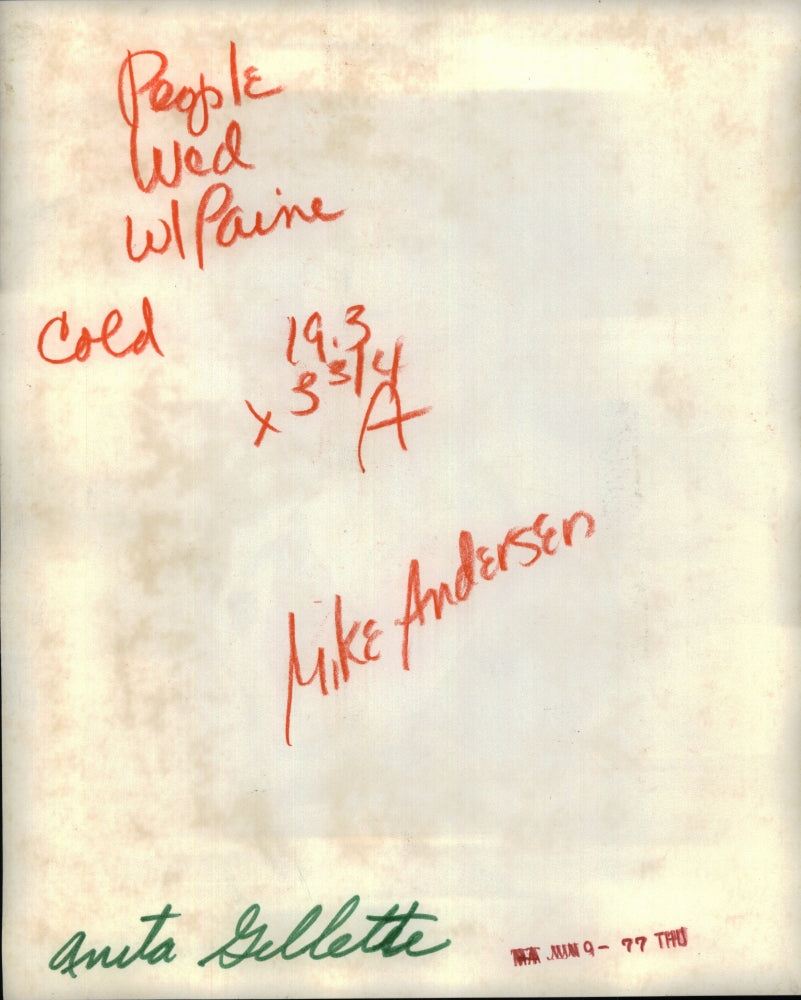 People
Wed
W/Paine
Cold
19.3
x 3 3/4
A
Mike Andersen
Anita Gillette
JUN 9 - 77 THU